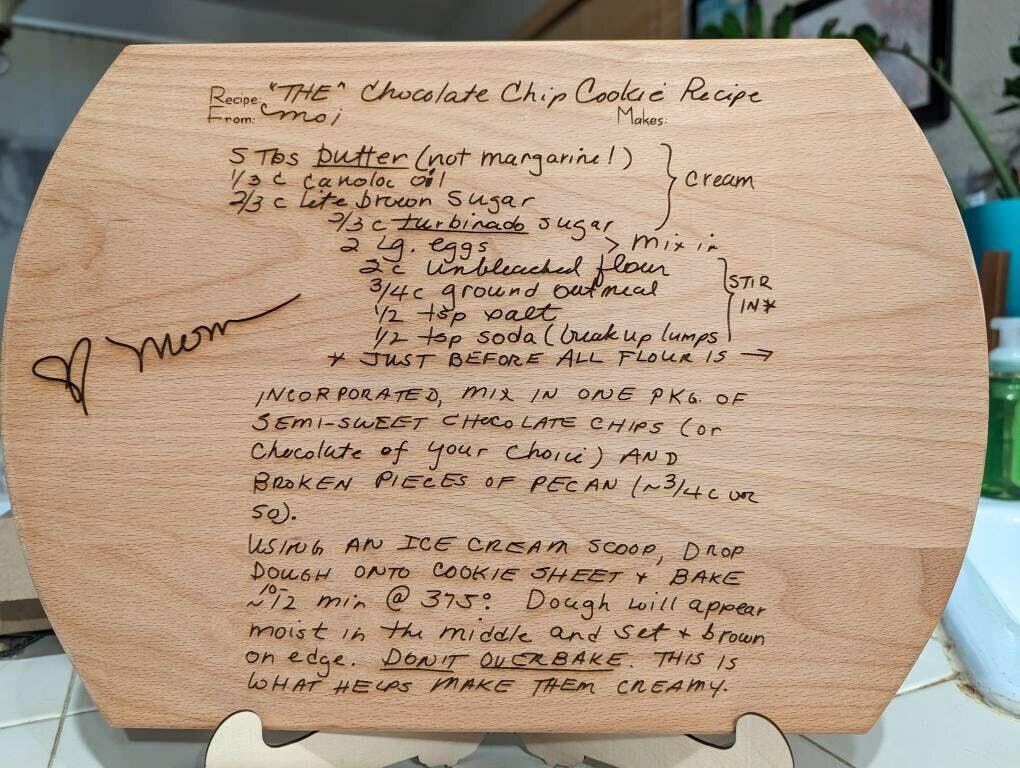 Recipe: "THE" Chocolate Chip Cookie Recipe
From: moi Makes:
5 Tbs butter (not margarine!)
1/3 c canola oil
2/3 c lite brown sugar
} cream
2/3 c turbinado sugar
2 lg. eggs > mix in
2 c unbleached flour
3/4 c ground outmeal
1/2 tsp salt
1/2 tsp soda (break up lumps
} STIR
IN*
* JUST BEFORE ALL FLOUR IS →
INCORPORATED, MIX IN ONE PKG. OF
SEMI-SWEET CHOCOLATE CHIPS (or
Chocolate of your choice) AND
BROKEN PIECES OF PECAN (~3/4 c or
so).
USING AN ICE CREAM SCOOP, DROP
DOUGH ONTO COOKIE SHEET + BAKE
~10-12 min @ 375°. Dough will appear
moist in the middle and set + brown
on edge. DON'T OVERBAKE. THIS IS
WHAT HELPS MAKE THEM CREAMY.
♡ Mom